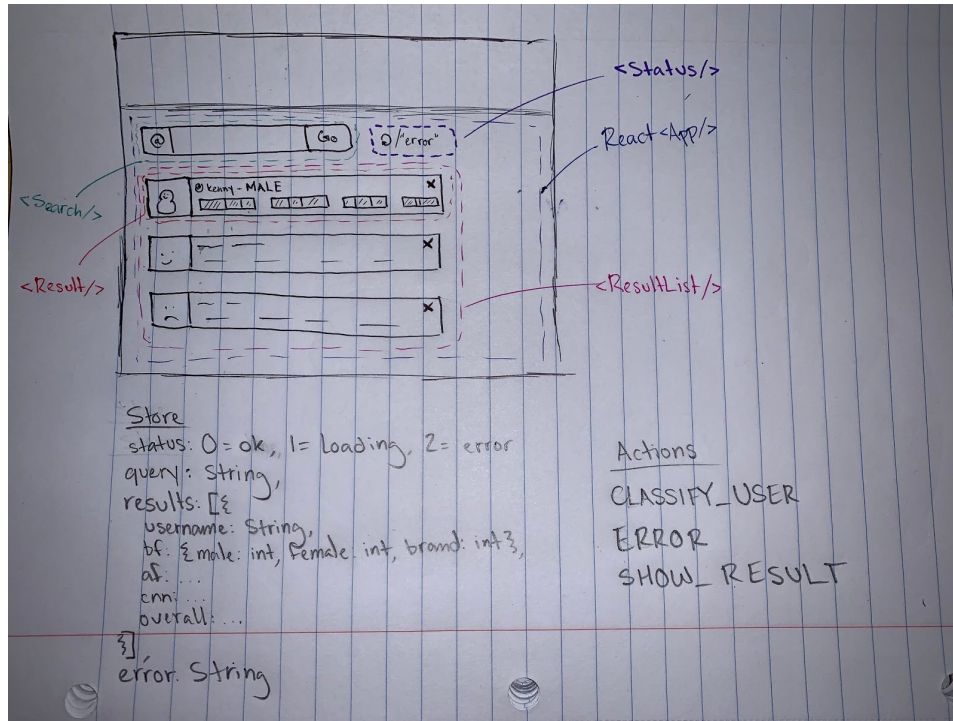 <Status/>
@ Go
"error"
React <App/>
@kenny - MALE x
<Search/>
x
<Result/>
<ResultList/>
x
Store
status: 0 = ok, 1 = Loading, 2 = error
query: String,
results: [{
username: String,
bf: {male: int, female: int, brand: int},
af: ...
cnn: ...
overall: ...
}],
error: String
Actions
CLASSIFY_USER
ERROR
SHOW_RESULT